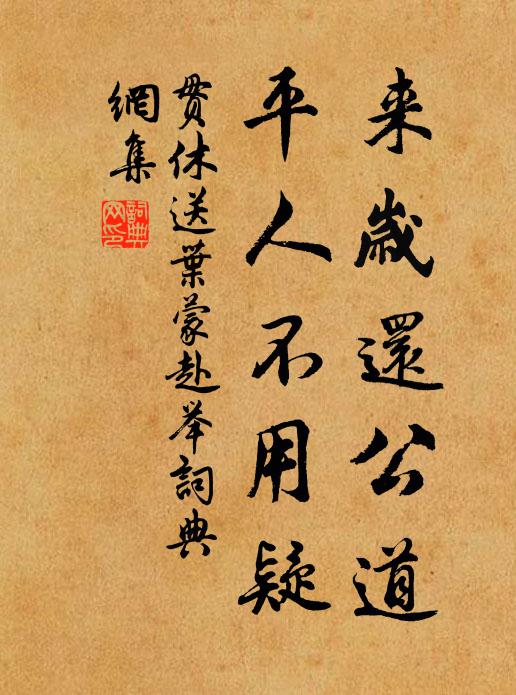 来歲還公道
平人不用疑
贯休送葉蒙赴举詞典
網集
詞典
网印